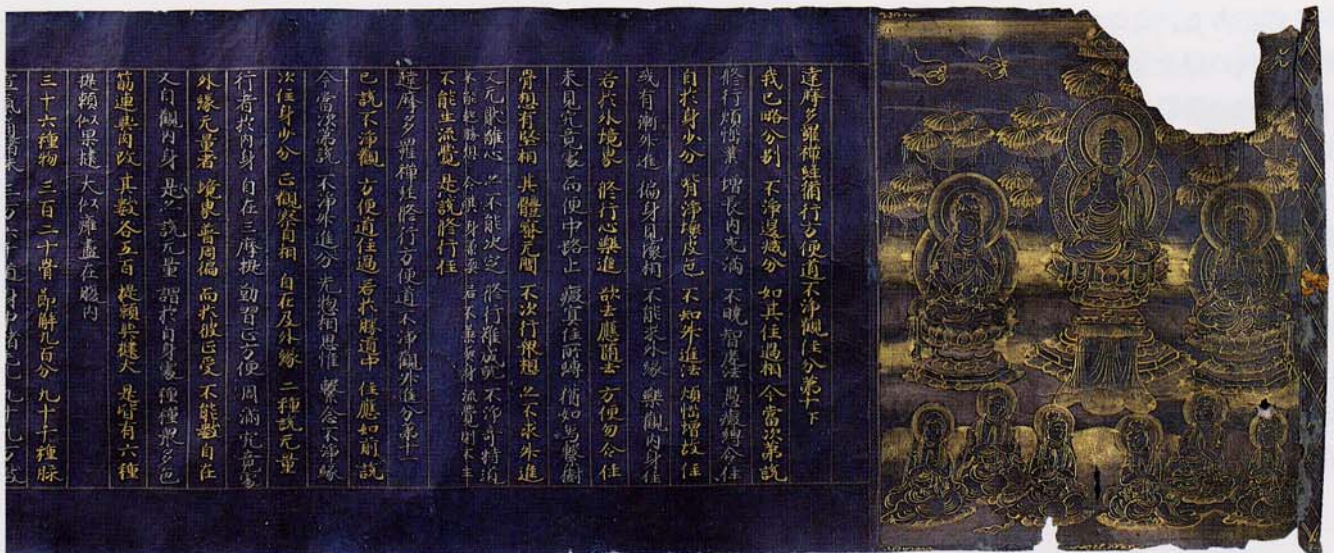 達摩多羅禪經脩行方便道不淨觀住分第十下
我已略分別 不淨邊減分 如其住過相 今當次第說
修行煩惱業 增長內充滿 不曉智度法 愚癡縛令住
自於身少分 背淨壞皮色 不知升進法 煩惱增故住
或有漸升進 徧身見壞相 不能求外緣 樂觀內身住
若於外境界 修行心樂進 欲去應聽去 方便勿令住
未見究竟處 而便中路止 癡冥住所縛 猶如馬繫樹
骨想有堅相 其體聚无間 不次行界想 亦不求升進
又无猒離心 亦不能決定 修行離
不能生流覺 是說修行住
達摩多羅禪經修行方便道不淨觀升進分第十一
已說不淨觀 方便道住過 若於勝道中 住應如前說
今當次第說 不淨升進分 光 相思惟 繫念不淨緣
次住身少分 正觀察自相 自在及外緣 二種說无量
行者於內身 自在三摩提 勤習正方便 周滿究竟處
外緣无量者 境界普周徧 而於彼正受 不能數自在
又自觀內身 是亦說无量 謂於自身處 種種衆多色
筋連與肉段 其數各五百 提賴與健大 是皆有六種
提賴似果 大似癰盡在腹內
三十六種物 三百二十骨 節解九百分 九十九種脉